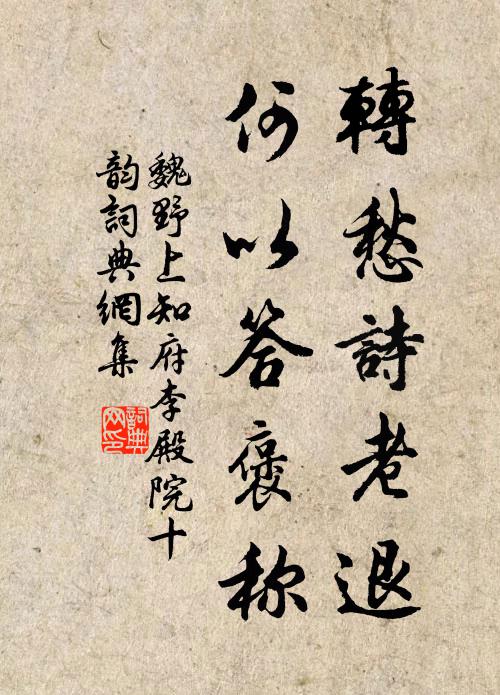 轉愁詩老退
何以答褒称
魏野上知府李殿院十
韵詞典網集
詞典
网印